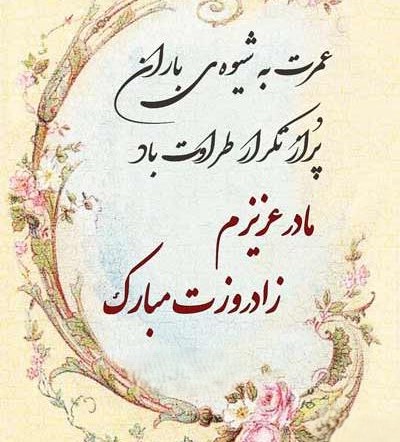 عمرت به شیوه‌ی باران
پُر از تکرار طراوت باد
مادر عزیزم
زادروزت مبارک